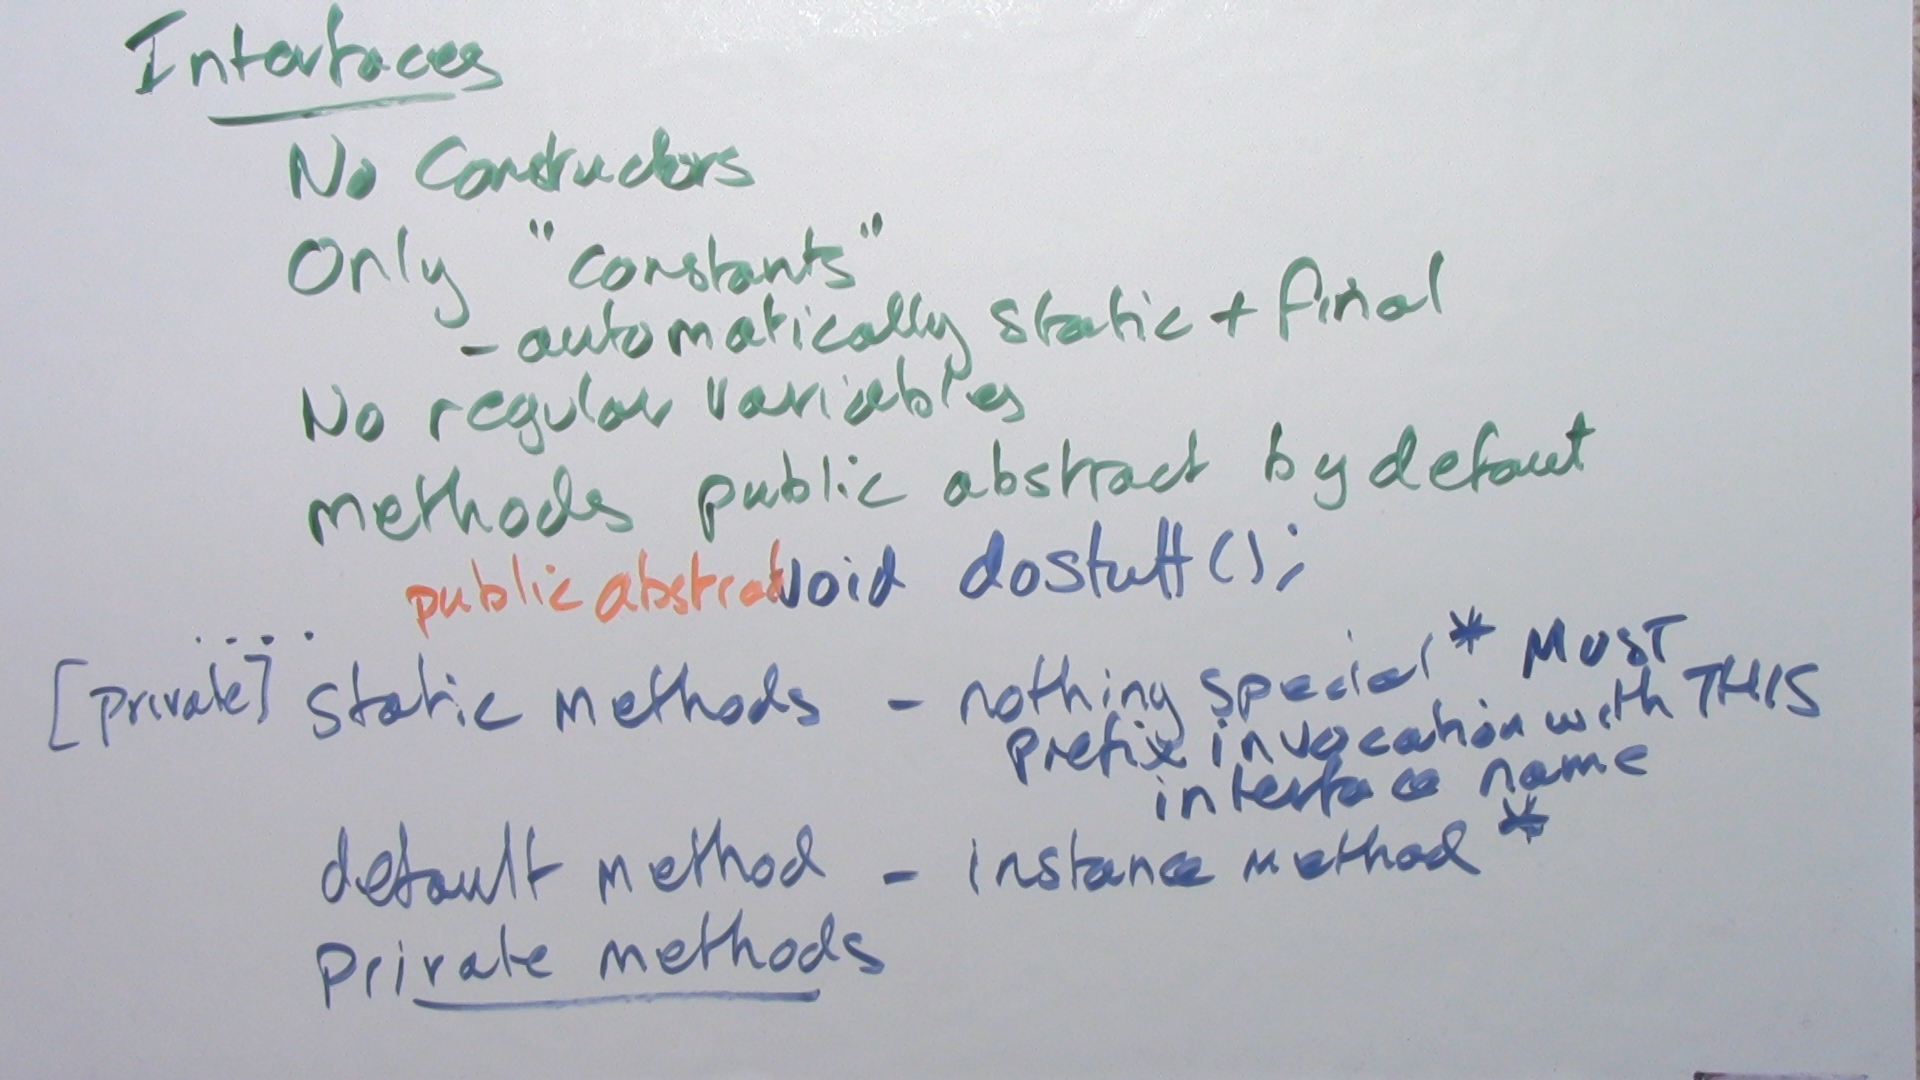 Interfaces
No Constructors
Only "constants"
- automatically static + final
No regular variables
methods public abstract by defaut
public abstract void dostuff();
....
[private] static methods - nothing special * MUST
prefix invocation with THIS
interface name
default method - instance method *
private methods